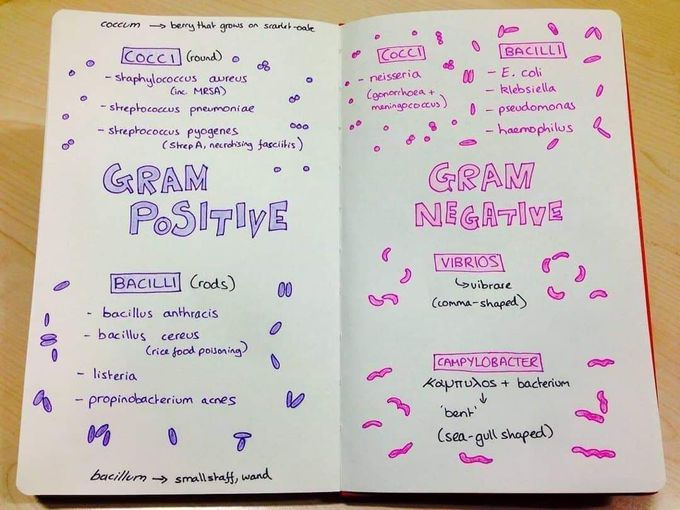 coccum → berry that grows on scarlet-oak
COCCI (round)
- staphylococcus aureus
(inc. MRSA)
- streptococcus pneumoniae
- streptococcus pyogenes
(Strep A, necrotising fasciitis)
GRAM
POSITIVE
BACILLI (rods)
- bacillus anthracis
- bacillus cereus
(rice food poisoning)
- listeria
- propinobacterium acnes
bacillum → small staff, wand
COCCI
- neisseria
(gonorrhoea +
meningococcus)
BACILLI
- E. coli
- klebsiella
- pseudomonas
- haemophilus
GRAM
NEGATIVE
VIBRIOS
↳ vibrare
(comma-shaped)
CAMPYLOBACTER
Καμπυλος + bacterium
↓
'bent'
(sea-gull shaped)